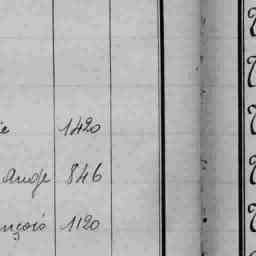 ie 1420
Ange 846
nçois 1120